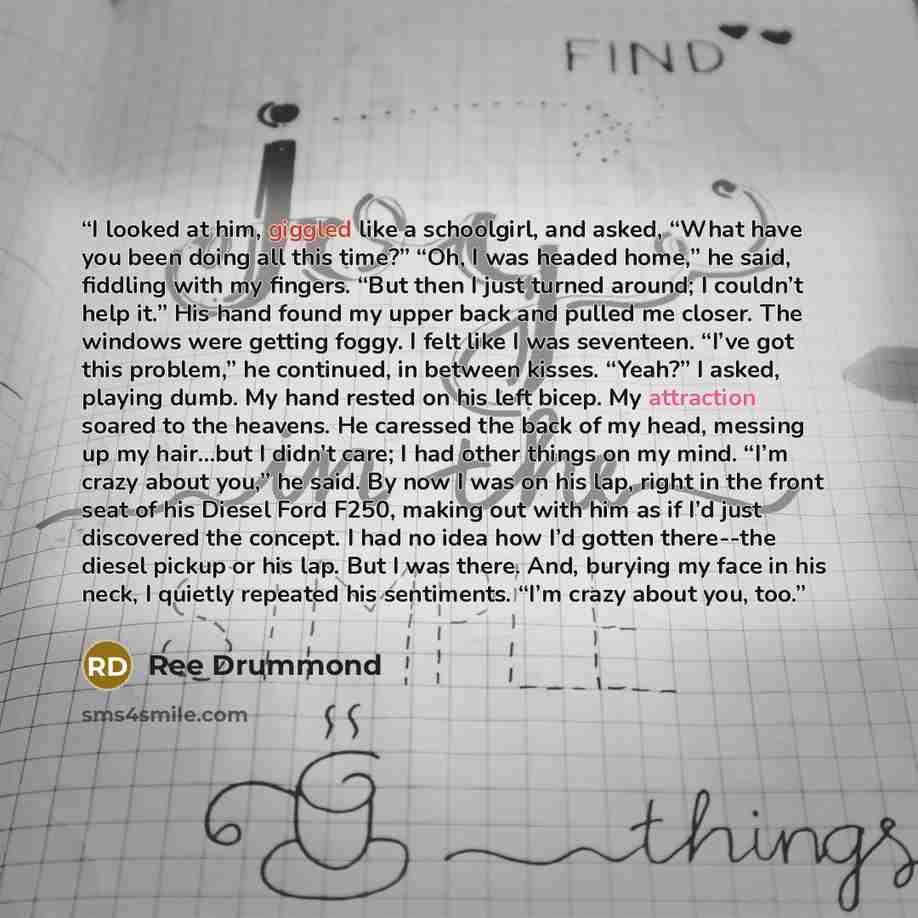 FIND
joy
“I looked at him, giggled like a schoolgirl, and asked, “What have
you been doing all this time?” “Oh, I was headed home,” he said,
fiddling with my fingers. “But then I just turned around; I couldn’t
help it.” His hand found my upper back and pulled me closer. The
windows were getting foggy. I felt like I was seventeen. “I’ve got
this problem,” he continued, in between kisses. “Yeah?” I asked,
playing dumb. My hand rested on his left bicep. My attraction
soared to the heavens. He caressed the back of my head, messing
up my hair...but I didn’t care; I had other things on my mind. “I’m
crazy about you,” he said. By now I was on his lap, right in the front
seat of his Diesel Ford F250, making out with him as if I’d just
discovered the concept. I had no idea how I’d gotten there--the
diesel pickup or his lap. But I was there. And, burying my face in his
neck, I quietly repeated his sentiments. “I’m crazy about you, too.”
in the
SIMPLE
RD Ree Drummond
sms4smile.com
things